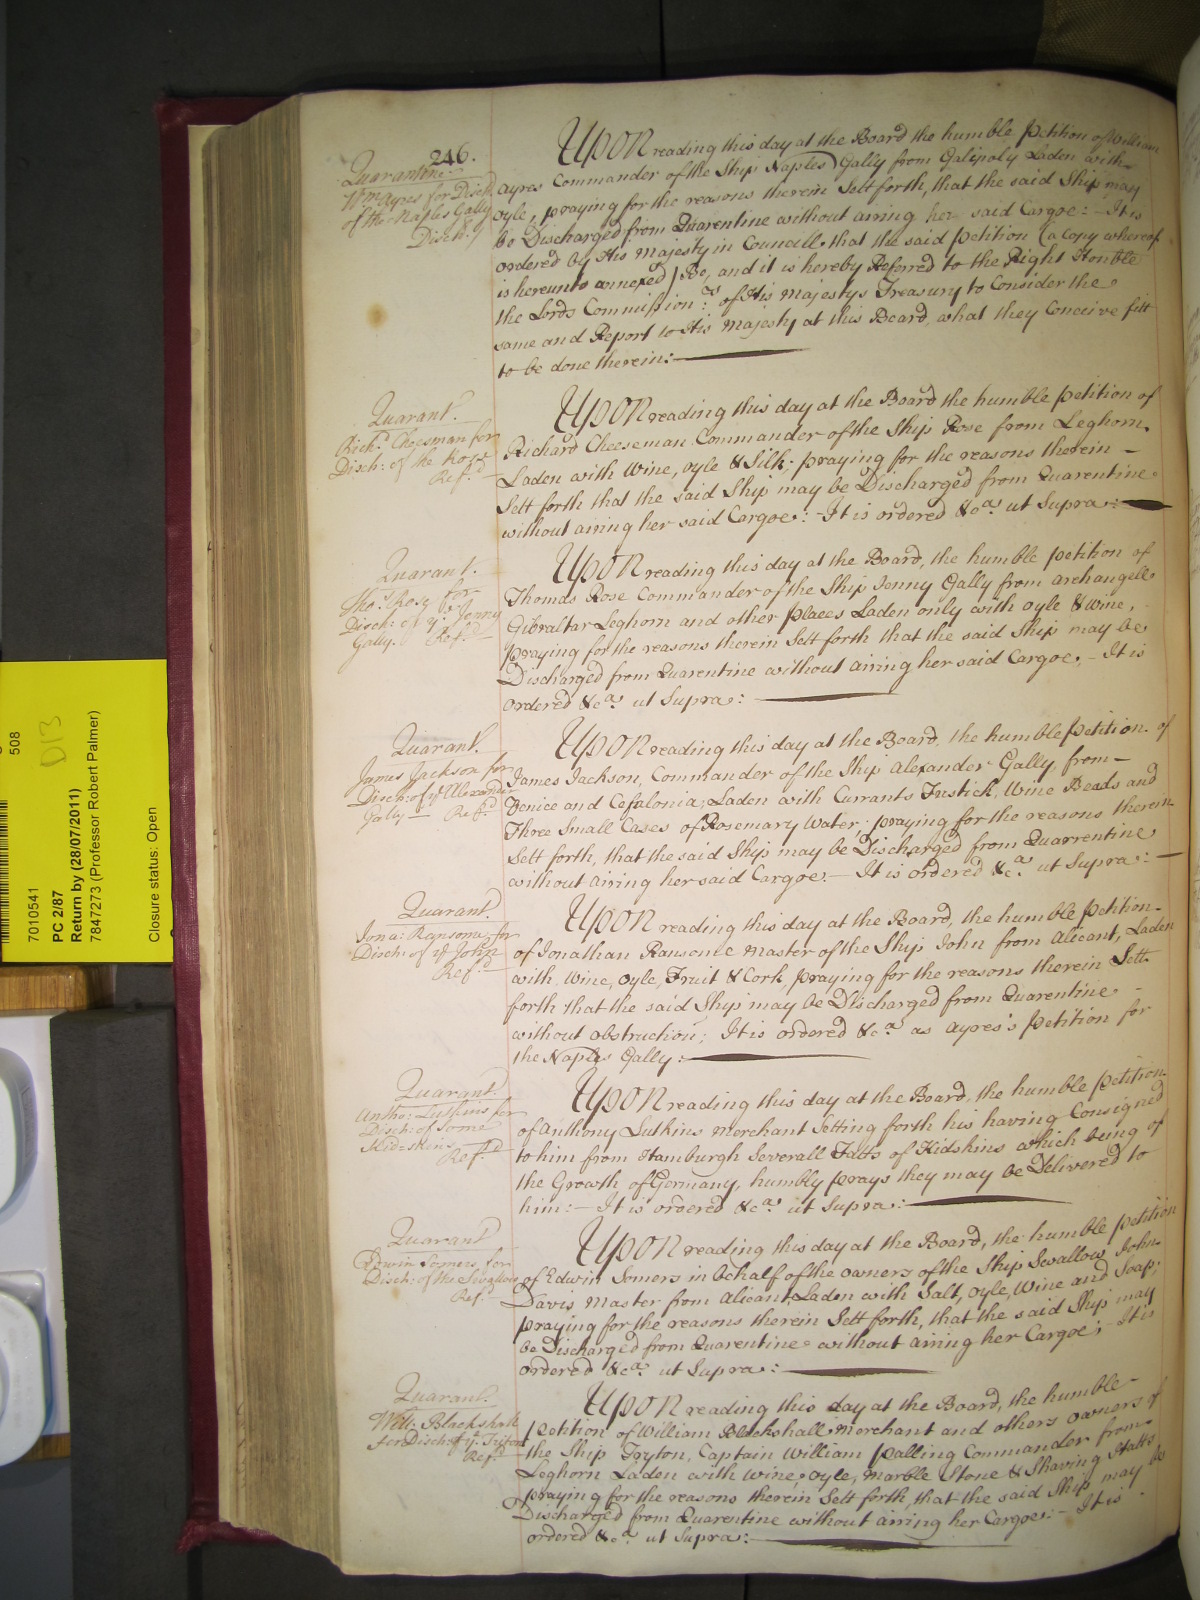 246.
Quarantine
Wm. Ayres for Disch
of the Naples Gally
Disch:
UPON reading this day at the Board the humble Petition of William
Ayres Commander of the Ship Naples Gally from Galipoly Laden with
Oyle, praying for the reasons therein Sett forth, that the said Ship may
be Discharged from Quarentine without airing her said Cargoe: - It is
ordered by His Majesty in Councill, that the said Petition (a Copy whereof
is hereunto annexed) Be, and it is hereby Referred to the Right Honble
the Lords Commission:rs of His Majestys Treasury to Consider the
same and Report to His Majesty at this Board, what they Conceive fitt
to be done therein:
Quarant.
Rich:d Cheesman for
Disch: of the Rose
Ref:d
UPON reading this day at the Board the humble Petition of
Richard Cheeseman Commander of the Ship Rose from Leghorn,
Laden with Wine, Oyle & Silk; praying for the reasons therein -
Sett forth that the said Ship may be Discharged from Quarentine
without airing her said Cargoe: - It is ordered &c:a ut Supra:
Quarant.
Tho:s Rose for
Disch: of ye: Jenny
Gally. Ref:d
UPON reading this day at the Board, the humble Petition of
Thomas Rose Commander of the Ship Jenny Gally from Archangell
Gibraltar Leghorn and other places Laden only with Oyle & Wine,
praying for the reasons therein Sett forth that the said Ship may be
Discharged from Quarentine without airing her said Cargoe, - It is
ordered &c:a ut Supra:
Quarant.
James Jackson for
Disch: of ye Alexander
Gally Ref:d
UPON reading this day at the Board, the humble Petition of
James Jackson, Commander of the Ship Alexander Gally, from -
Venice and Cefalonia, Laden with Currants Fustick, Wine Beads and
Three Small Cases of Rosemary Water; praying for the reasons therein
Sett forth, that the said Ship may be Discharged from Quarrentine
without airing her said Cargoe. - It is ordered &c:a ut Supra: -
Quarant.
Jona: Ransome for
Disch: of ye John
Ref:d
UPON reading this day at the Board, the humble Petition -
of Jonathan Ransome Master of the Ship John from Alicant, Laden
with Wine, Oyle, Fruit & Cork, praying for the reasons therein Sett
forth that the said Ship may be Discharged from Quarentine -
without obstruction; It is ordered &c:a as Ayres's Petition for
the Naples Gally:
Quarant.
Antho: Lutkins for
Disch: of Some
Kid-skins
Ref:d
UPON reading this day at the Board, the humble Petition
of Anthony Lutkins Merchant Setting forth his having Consigned
to him from Hamburgh Severall Fatts of Kidskins which being of
the Growth of Germany, humbly prays they may be Delivered to
him: - It is ordered &c:a ut Supra:
Quarant
Edwin Somers for
Disch: of the Swallow
Ref:d
UPON reading this day at the Board, the humble Petition
of Edwin Somers in behalf of the owners of the Ship Swallow John
Davis Master from Alicant, Laden with Salt, Oyle, Wine and Soap;
praying for the reasons therein Sett forth, that the said Ship may
be Discharged from Quarentine without airing her Cargoe; It is
ordered &c:a ut Supra:
Quarant.
Will: Blackshall
for Disch: of ye: Tryton
Ref:d
UPON reading this day at the Board, the humble -
Petition of William Blackshall Merchant and others owners of
the Ship Tryton, Captain William Palling Commander from
Leghorn Laden with Wine, Oyle, Marble Stone & Shaving Hatts
praying for the reasons therein Sett forth, that the said Ship may be
Discharged from Quarentine without airing her Cargoe: - It is
ordered &c:a ut Supra:
508
D13
7010541
PC 2/87
Return by (28/07/2011)
7847273 (Professor Robert Palmer)
Closure status: Open